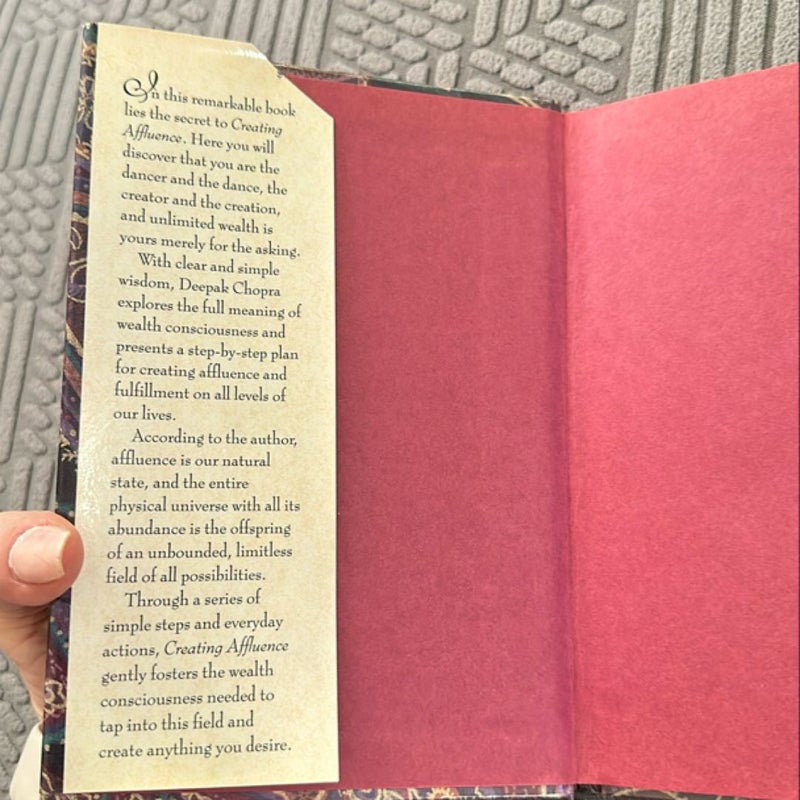 In this remarkable book
lies the secret to Creating
Affluence. Here you will
discover that you are the
dancer and the dance, the
creator and the creation,
and unlimited wealth is
yours merely for the asking.
With clear and simple
wisdom, Deepak Chopra
explores the full meaning of
wealth consciousness and
presents a step-by-step plan
for creating affluence and
fulfillment on all levels of
our lives.
According to the author,
affluence is our natural
state, and the entire
physical universe with all its
abundance is the offspring
of an unbounded, limitless
field of all possibilities.
Through a series of
simple steps and everyday
actions, Creating Affluence
gently fosters the wealth
consciousness needed to
tap into this field and
create anything you desire.